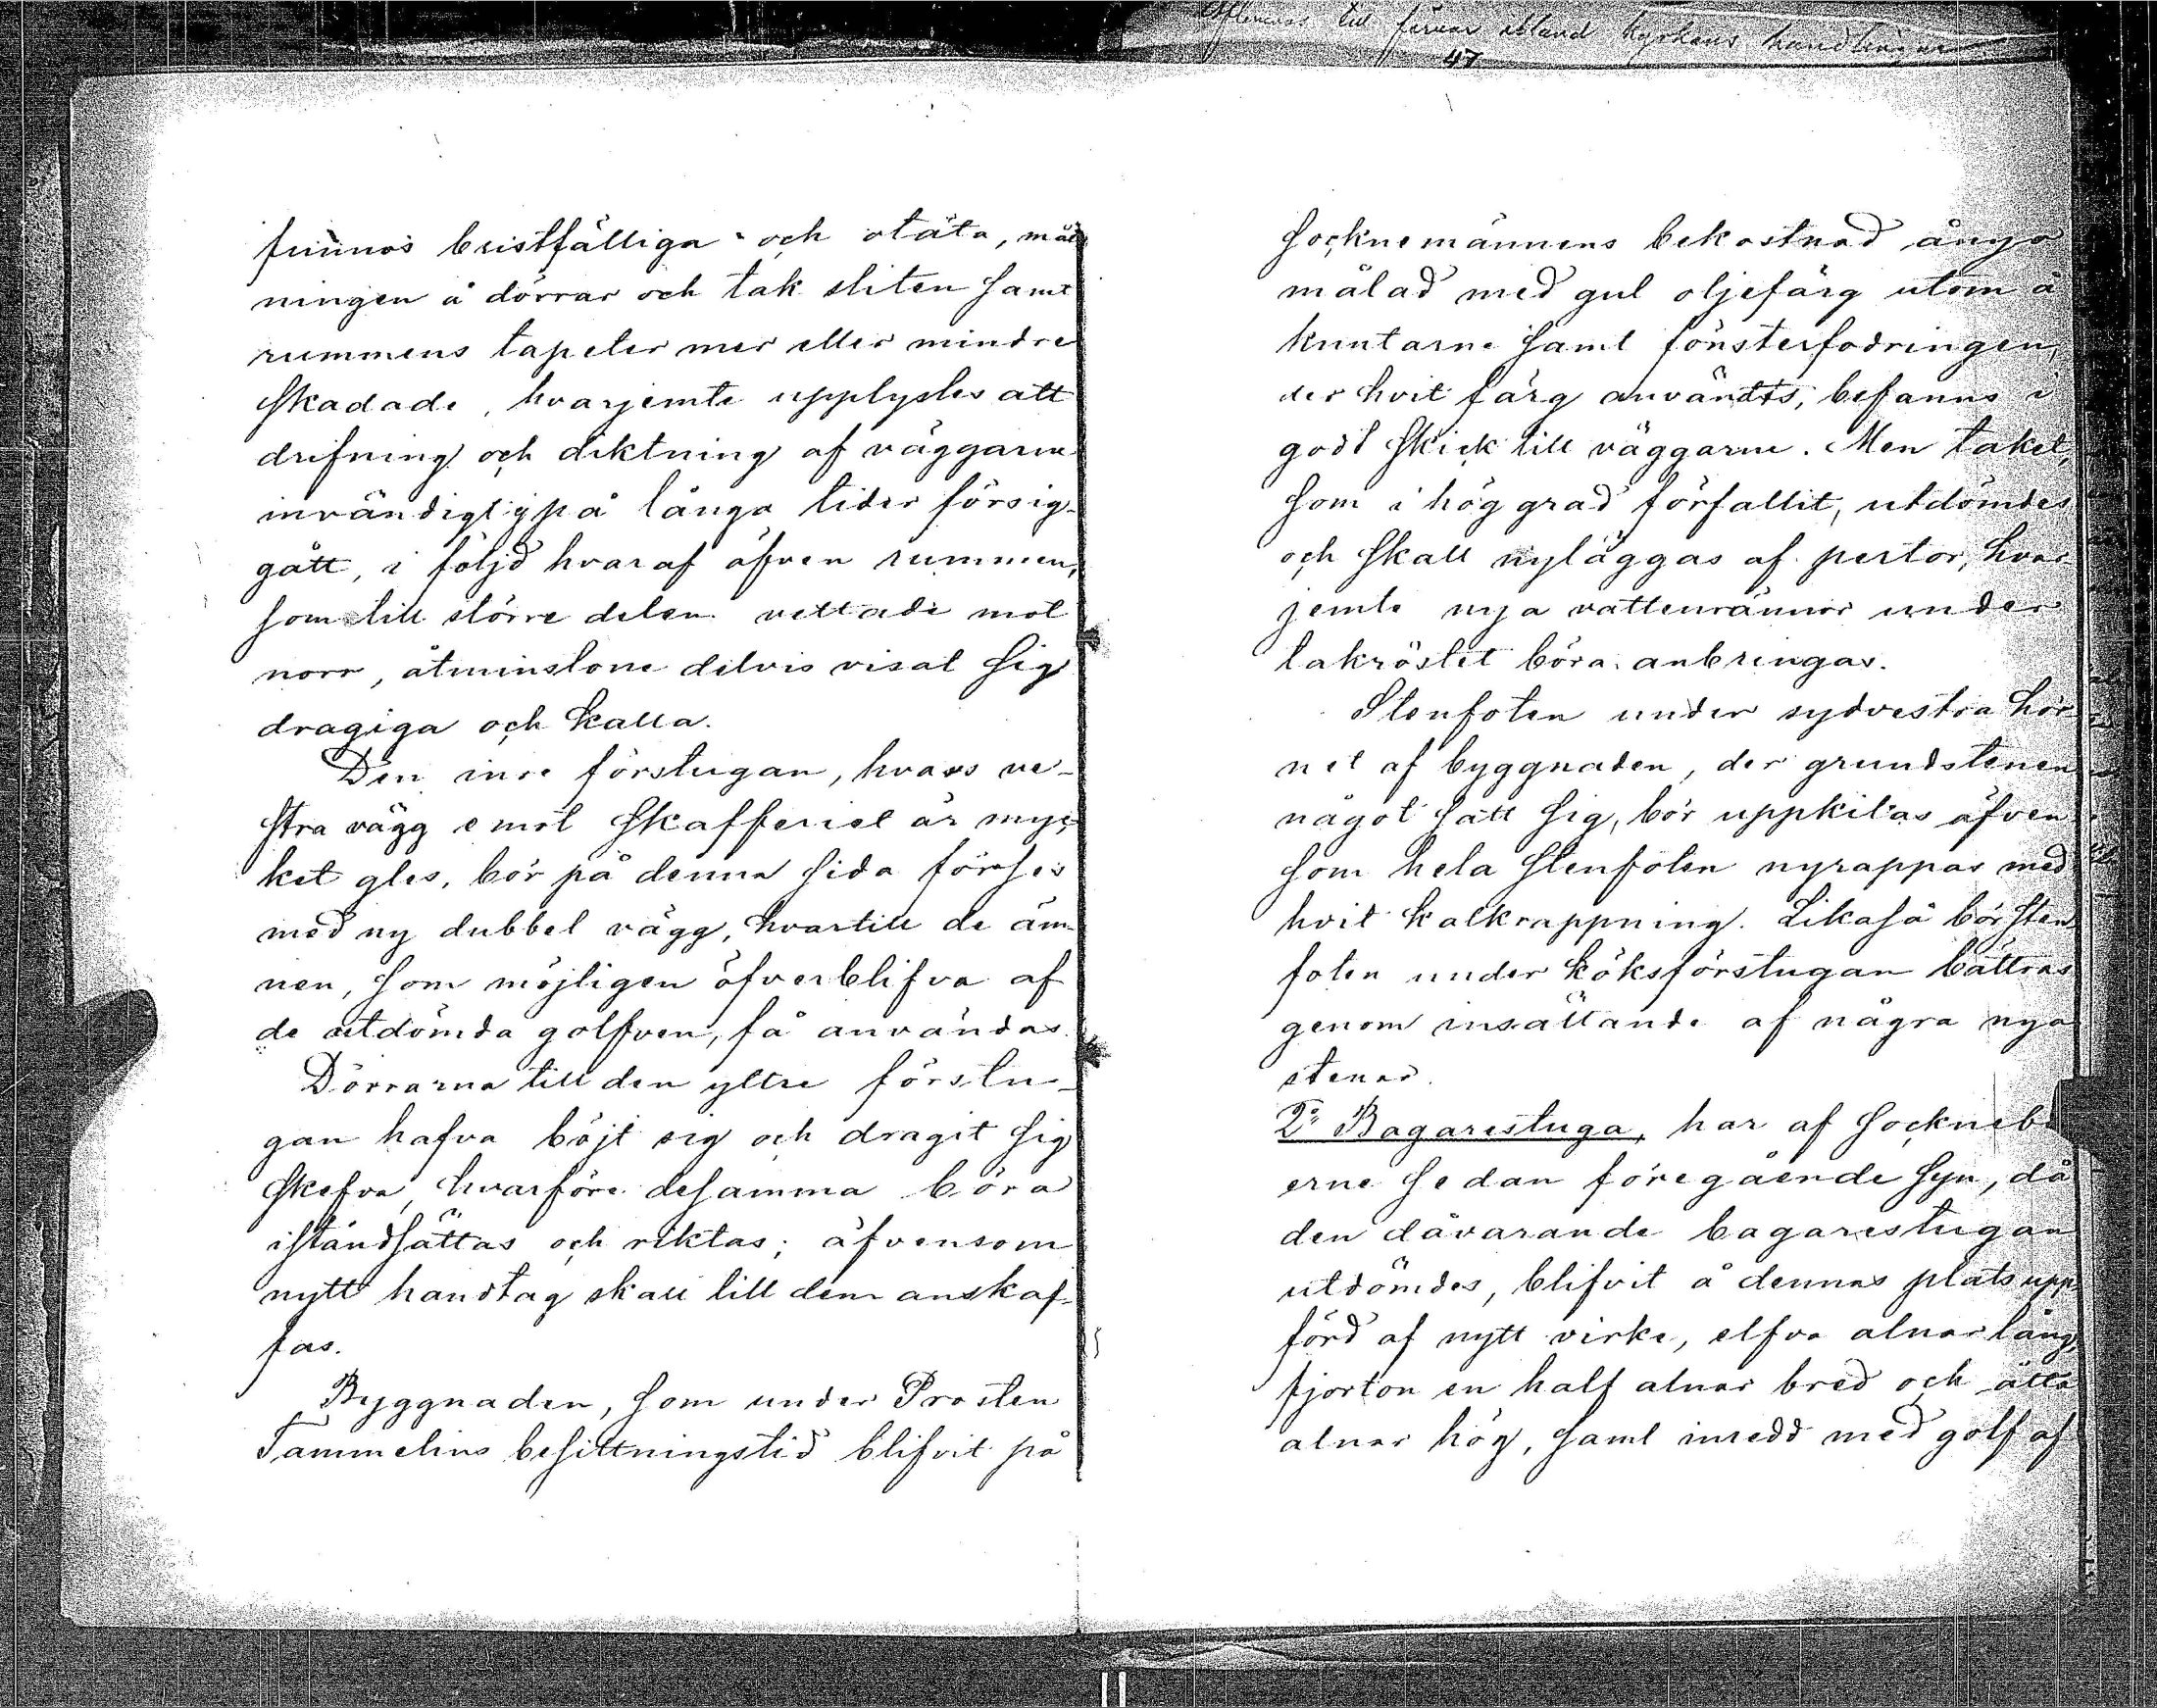 till förvar ibland kyrkans handlingar
47
funnos bristfälliga och otäta, mål
ningen å dörrar och tak sliten samt
rummens tapeter mer eller mindre
skadade, hvarjemte upplystes att
drifning och diktning af väggarna
invändigt ej på långa tider försig-
gått, i följd hvaraf äfven rummen,
som till större delen vettade mot
norr, åtminstone delvis visat sig
dragiga och kalla.
Den inre förstugan, hvars ve-
stra vägg emot skafferiet är myc-
ket gles, bör på denna sida förses
med ny dubbel vägg, hvartill de äm-
nen, som möjligen öfverblifva af
de utdömda golfven, få användas.
Dörrarna till den yttre förstu-
gan hafva böjt sig och dragit sig
skefva, hvarföre desamma böra
iståndsättas och riktas; äfvensom
nytt handtag skall till dem anskaf-
fas.
Byggnaden, som under Prosten
Tammelins besittningstid blifvit på
socknemännens bekostnad ånyo
målad med gul oljefärg utom å
knutarne samt fönsterfodringen,
der hvit färg användts, befanns i
godt skick till väggarne. Men taket,
som i hög grad förfallit, utdömdes
och skall nyläggas af pertor, hvar-
jemte nya vattenrännor under
takröstet böra anbringas.
Stenfoten under sydvestra hör
net af byggnaden, der grundstenen
något satt sig, bör uppkilas äfven
som hela stenfoten nyrappas med
hvit kalkrappning. Likaså bör sten
foten under köksförstugan bättras
genom insättande af några nya
stenar.
2:o Bagarestuga, har af sockneb
erne sedan föregående syn, då
den dåvarande bagarestugan
utdömdes, blifvit å dennas plats upp-
förd af nytt virke, elfva alnar lång,
fjorton en half alnar bred och åtta
alnar hög, samt inredd med golf af